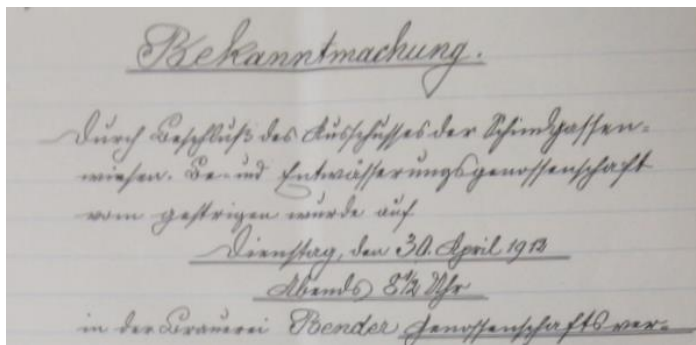 Bekanntmachung.
Durch Beschluß des Ausschusses der Schindgassen-
wiesen. Be- und Entwässerungsgenossenschaft
vom gestrigen wurde auf
Dienstag, den 30. April 1912
Abends 8 1/2 Uhr
in der Brauerei Bender Genossenschaftsver-